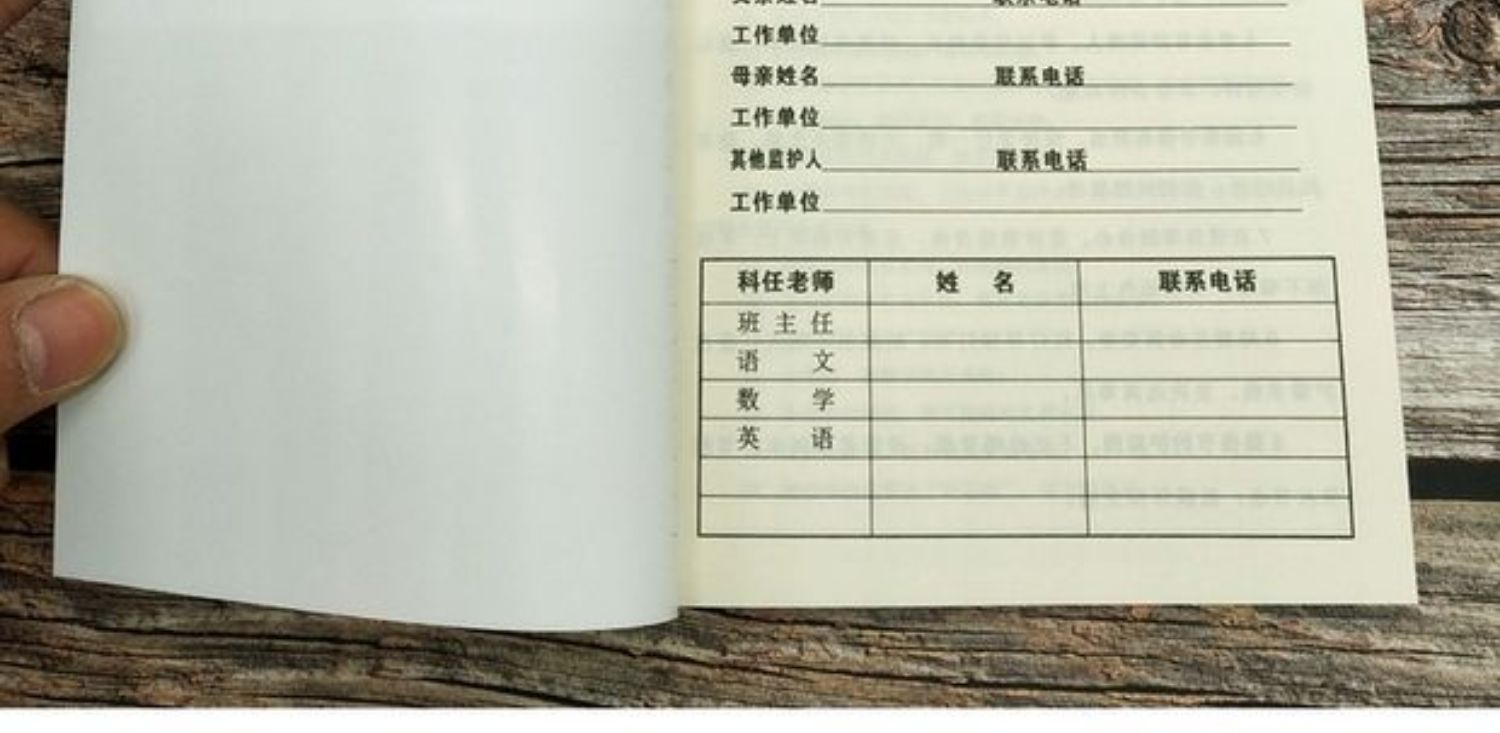 姓名 联系电话
工作单位
母亲姓名 联系电话
工作单位
其他监护人 联系电话
工作单位
科任老师 姓 名 联系电话
班 主 任
语 文
数 学
英 语